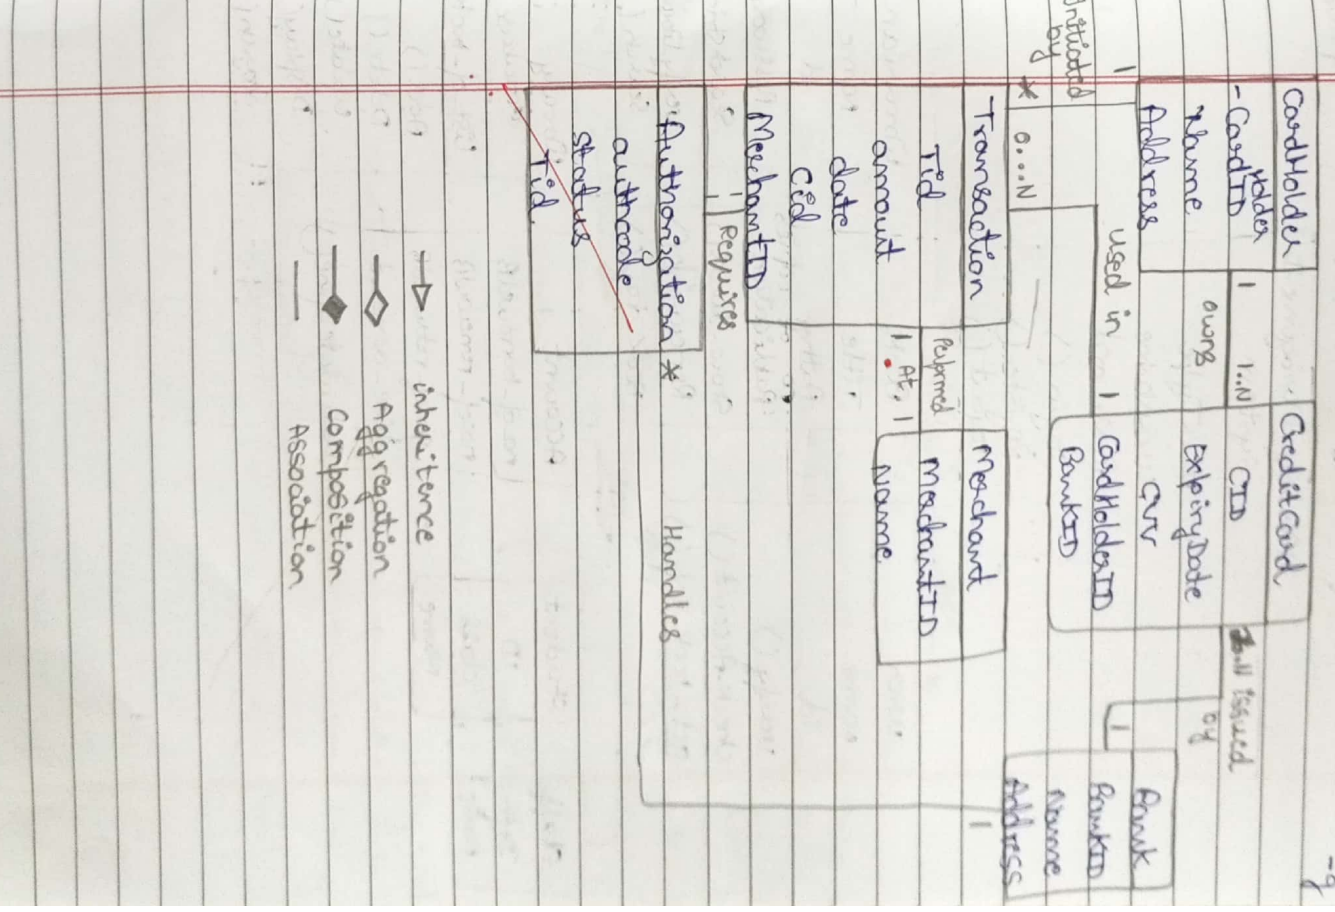 CardHolder
- CardHolderID
Name
Address
1
owns
1..N
CreditCard
CID
ExpiryDate
CVV
CardHolderID
BankID
issued
by
1
Bank
BankID
Name
Address
1
initiated
by
1
*
0....N
used in
1
Transaction
Tid
amount
date
Cid
MerchantID
Performed
1 At, 1
Merchant
MerchantID
Name
1
1
Requires
Authorisation
authcode
status
Tid
*
Handles
1
inheritence
Aggregation
Composition
Association